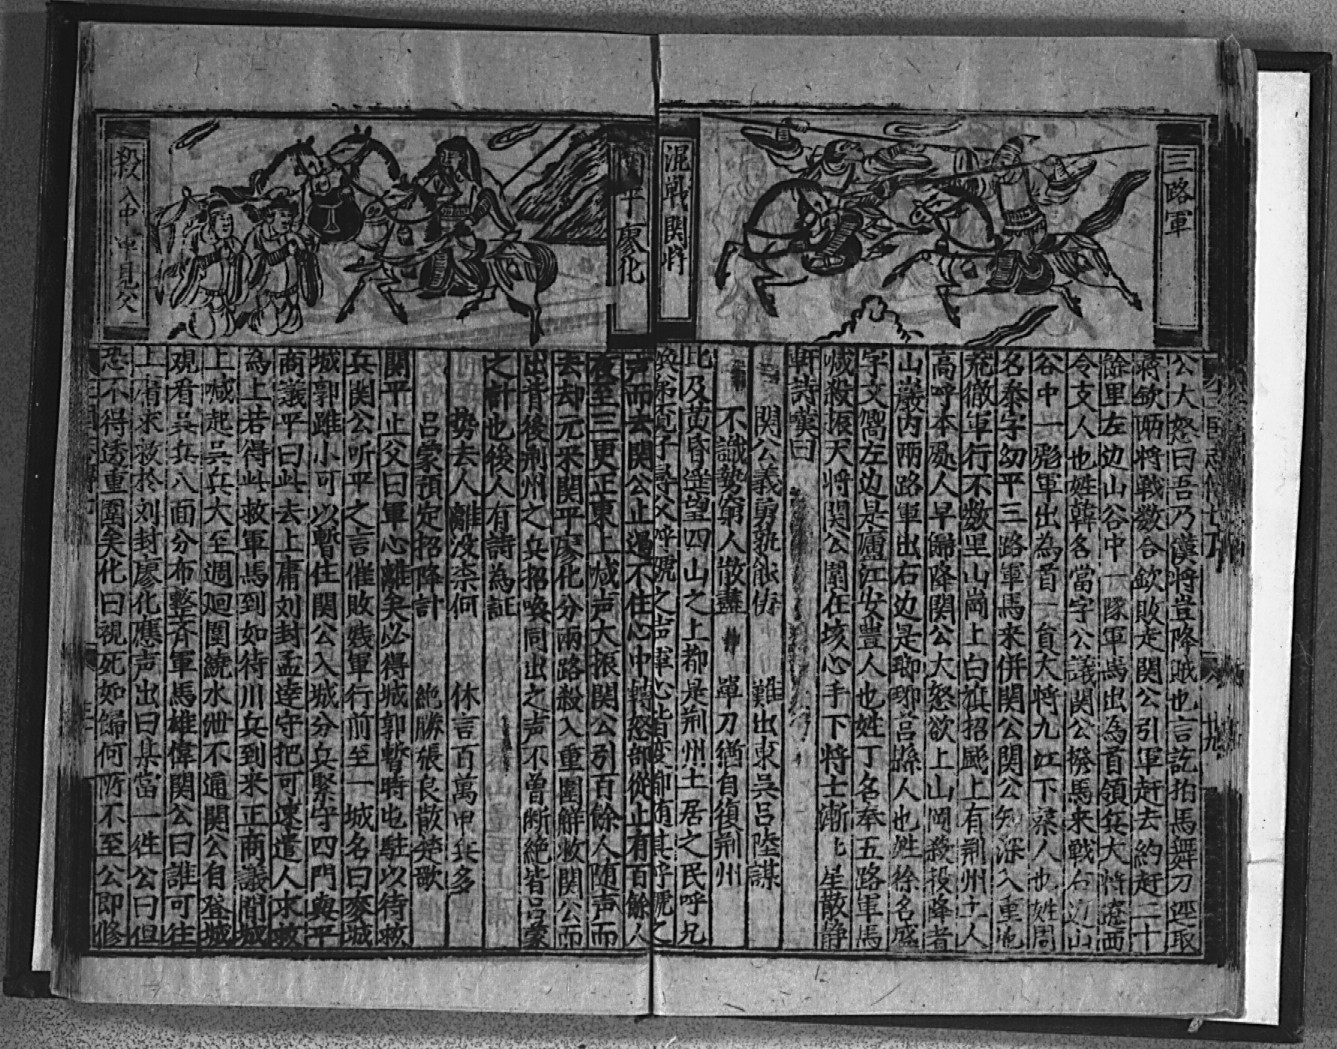 三路軍
混戰関將
公大怒曰吾乃漢將豈降賊也言訖拍馬舞刀逕取
蔣欽両將戰数合欽敗走関公引軍赶去約赶二十
餘里左边山谷中一隊軍馬出為首領兵大將遼西
令支人也姓韓名當字公議関公撥馬来戰右边山
谷中一彪軍出為首一員大將九江下蔡人也姓周
名泰字幼平三路軍馬来併関公関公知深入重地
飛徹軍行不数里山崗上白旗招颭上有荆州土人
高呼本處人早歸降関公大怒欲上山岡殺投降者
山巖內兩路軍出右边是瑯琊莒縣人也姓徐名盛
字文嚮左边是廬江安豊人也姓丁名奉五路軍馬
喊殺振天將関公圍在垓心手下將士漸上星散静
軒詩嘆曰
関公義勇孰能儔 難出東吳呂陸謀
不識勢窮人散盡 單刀猶自復荆州
比及黄昏遥望四山之上都是荆州土居之民呼兄
喚弟覔子尋父呼號之声軍心皆变都随其呼號之
声而去関公止遏不住心中轉怒部從止有百餘人
夜至三更正東上喊声大振関公引百餘人随声而
去却元来関平廖化分兩路殺入重圍解救関公而
出背後荆州之兵招喚同出之声不曽断絶皆呂蒙
之計也後人有詩為証
勢去人離没柰何 休言百萬甲兵多
呂蒙預定招降計 絶勝張良散楚歌
関平止父曰軍心離矣必得城郭暫時屯駐以待救
兵関公听平之言催敗残軍行前至一城名曰麥城
城郭雖小可以暫住関公入城分兵緊守四門與平
商議平曰此去上庸刘封孟逹守把可速遣人求救
為上若得此救軍馬到如待川兵到来正商議間城
上喊起吴兵大至週廻圍繞水泄不通関公自登城
观看吴兵八面分布整齐軍馬雄偉関公曰誰可往
上庸求救於刘封廖化應声出曰某當一徃公曰但
恐不得透重圍矣化曰視死如歸何所不至公即修
平廖化
殺入中中見父